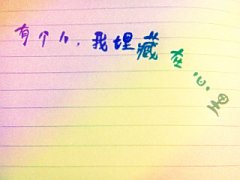 有个人，我埋藏在心里